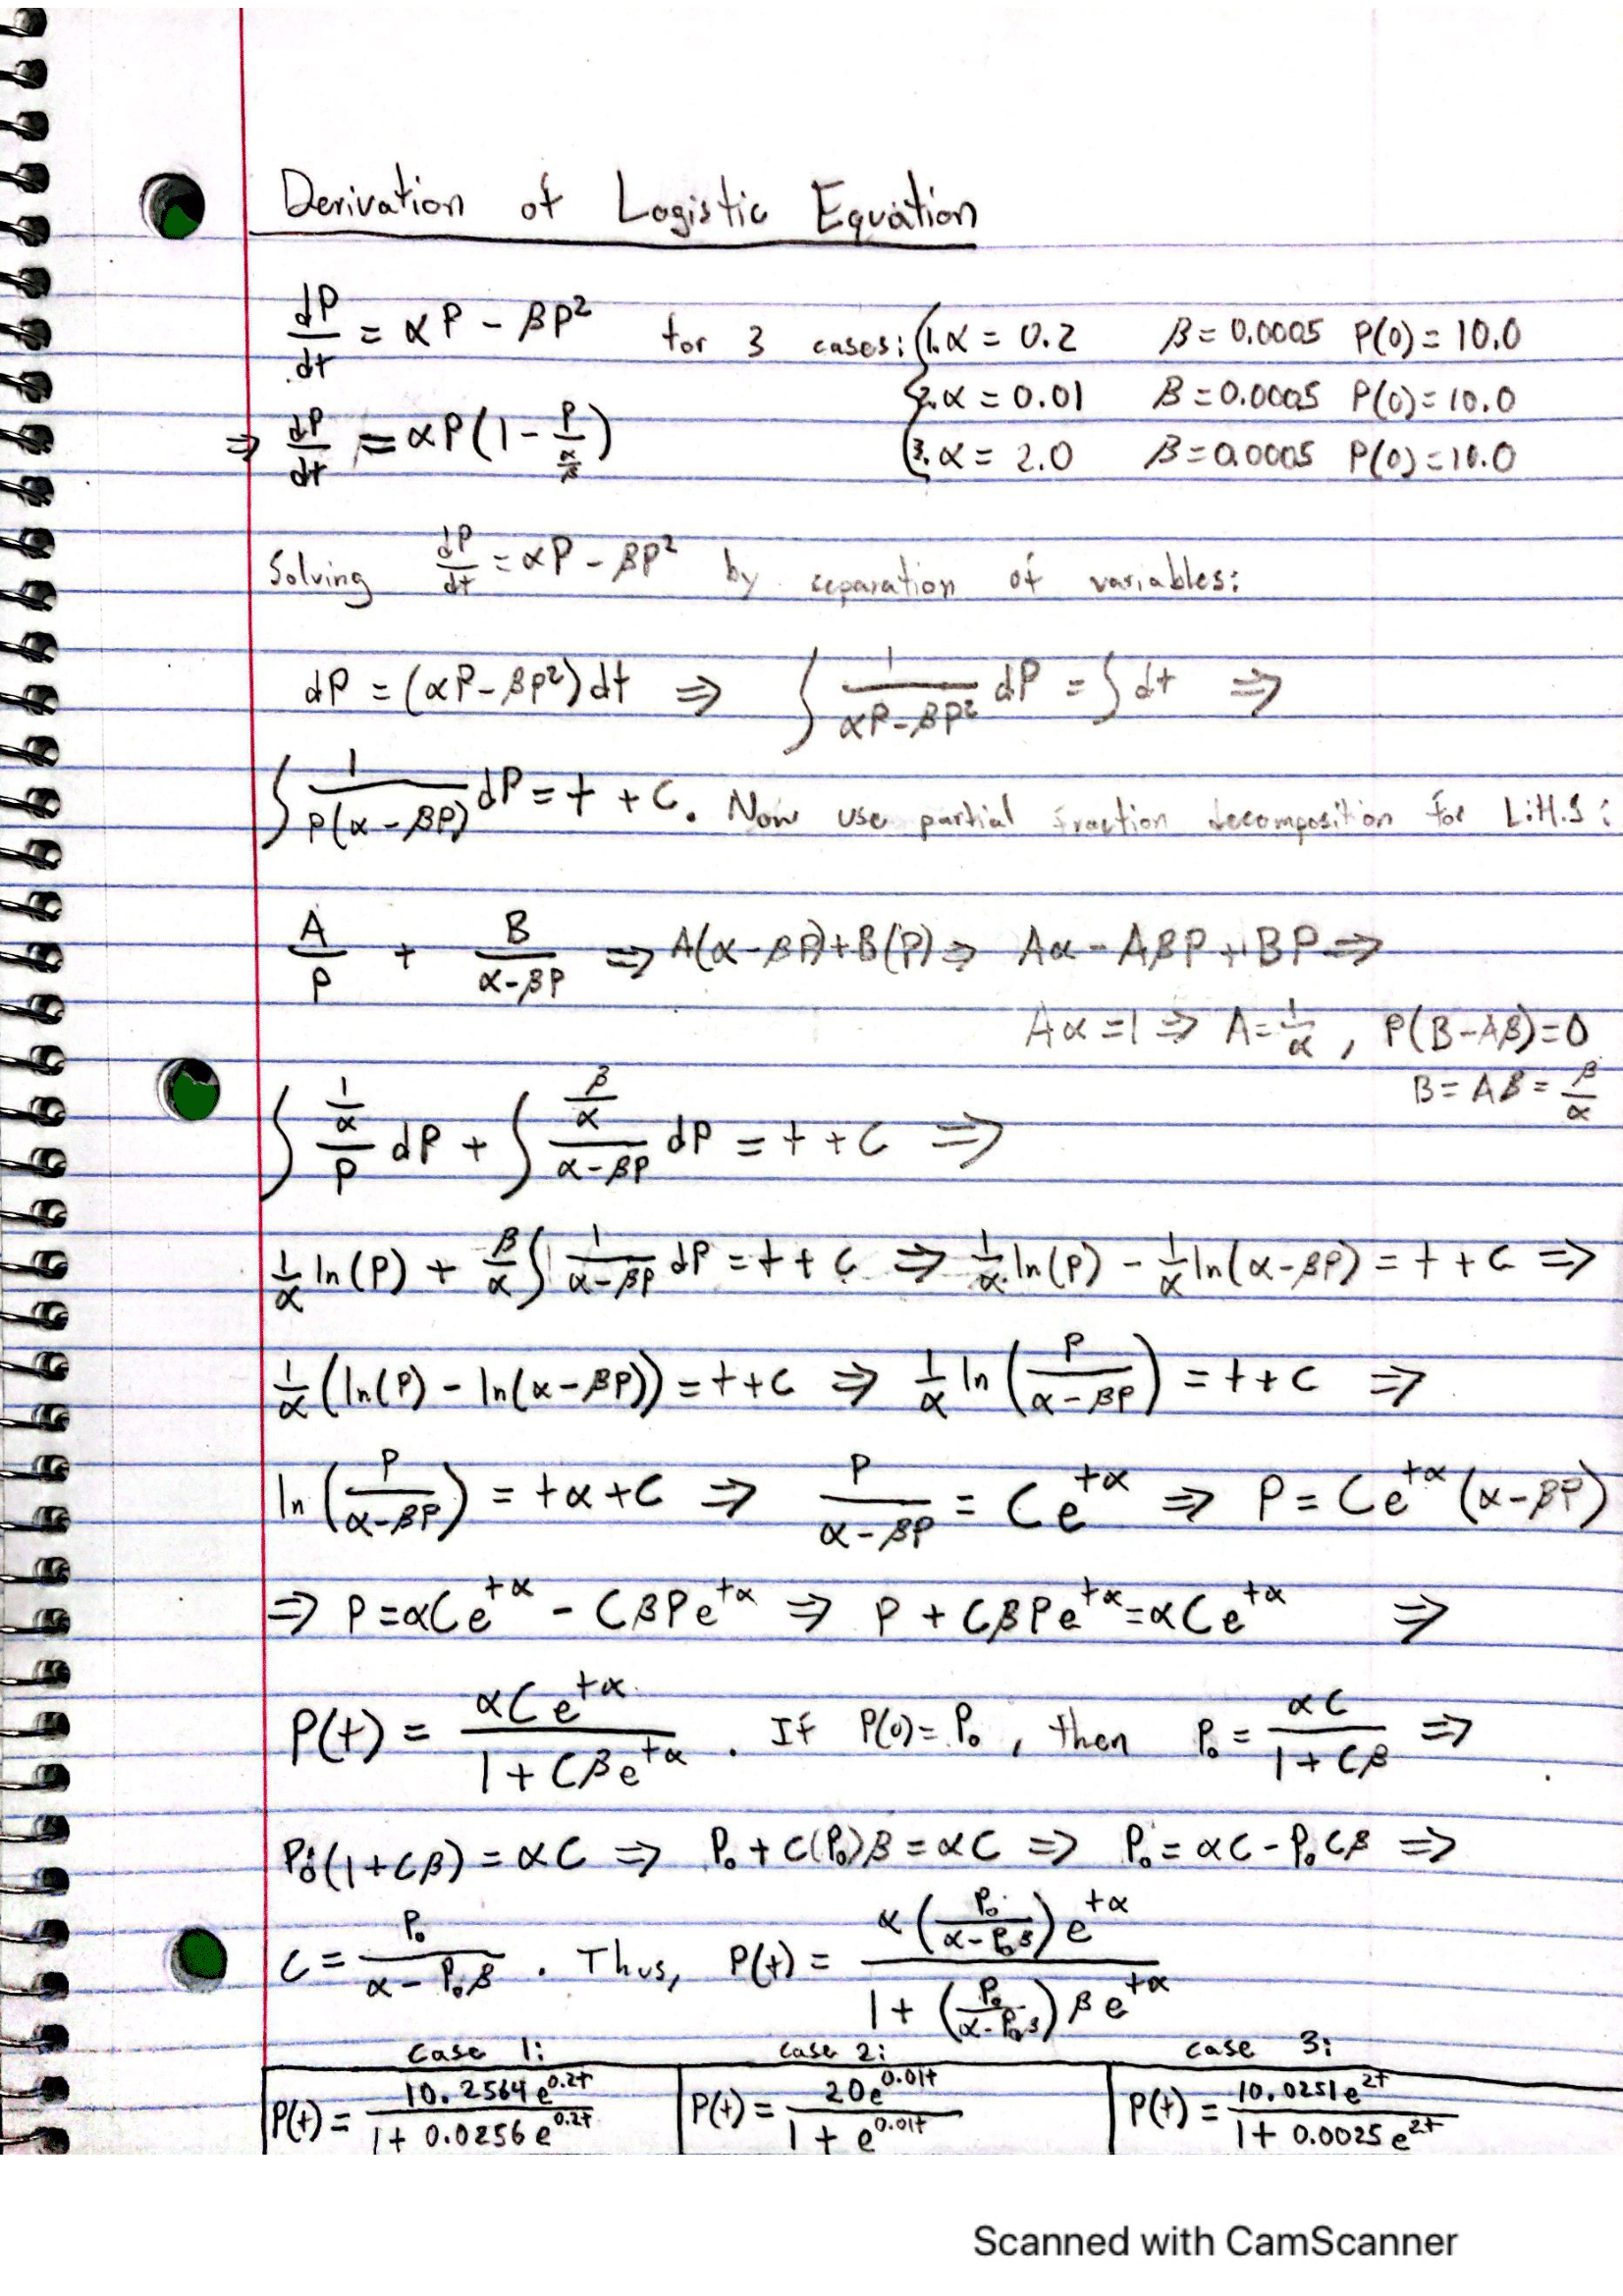 Derivation of Logistic Equation
dP/dt = αP - βP² for 3 cases: { 1. α = 0.2 β = 0.0005 P(0) = 10.0
2. α = 0.01 β = 0.0005 P(0) = 10.0
⇒ dP/dt = αP(1 - P/(α/β)) 3. α = 2.0 β = 0.0005 P(0) = 10.0
Solving dP/dt = αP - βP² by separation of variables:
dP = (αP - βP²)dt ⇒ ∫ 1/(αP - βP²) dP = ∫ dt ⇒
∫ 1/(P(α - βP)) dP = t + C. Now use partial fraction decomposition for L.H.S:
A/P + B/(α - βP) ⇒ A(α - βP) + B(P) ⇒ Aα - AβP + BP ⇒
Aα = 1 ⇒ A = 1/α , P(B - Aβ) = 0
B = Aβ = β/α
∫ (1/α)/P dP + ∫ (β/α)/(α - βP) dP = t + C ⇒
1/α ln(P) + β/α ∫ 1/(α - βP) dP = t + C ⇒ 1/α ln(P) - 1/α ln(α - βP) = t + C ⇒
1/α (ln(P) - ln(α - βP)) = t + C ⇒ 1/α ln(P/(α - βP)) = t + C ⇒
ln(P/(α - βP)) = tα + C ⇒ P/(α - βP) = Ce^(tα) ⇒ P = Ce^(tα)(α - βP)
⇒ P = αCe^(tα) - CβPe^(tα) ⇒ P + CβPe^(tα) = αCe^(tα) ⇒
P(t) = αCe^(tα)/(1 + Cβe^(tα)) . If P(0) = P₀ , then P₀ = αC/(1 + Cβ) ⇒
P₀(1 + Cβ) = αC ⇒ P₀ + C(P₀)β = αC ⇒ P₀ = αC - P₀Cβ ⇒
C = P₀/(α - P₀β) . Thus, P(t) = α(P₀/(α - P₀β))e^(tα) / (1 + (P₀/(α - P₀β))βe^(tα))
case 1: case 2: case 3:
P(t) = 10.2564e^(0.2t)/(1 + 0.0256e^(0.2t)) P(t) = 20e^(0.01t)/(1 + e^(0.01t)) P(t) = 10.0251e^(2t)/(1 + 0.0025e^(2t))
Scanned with CamScanner